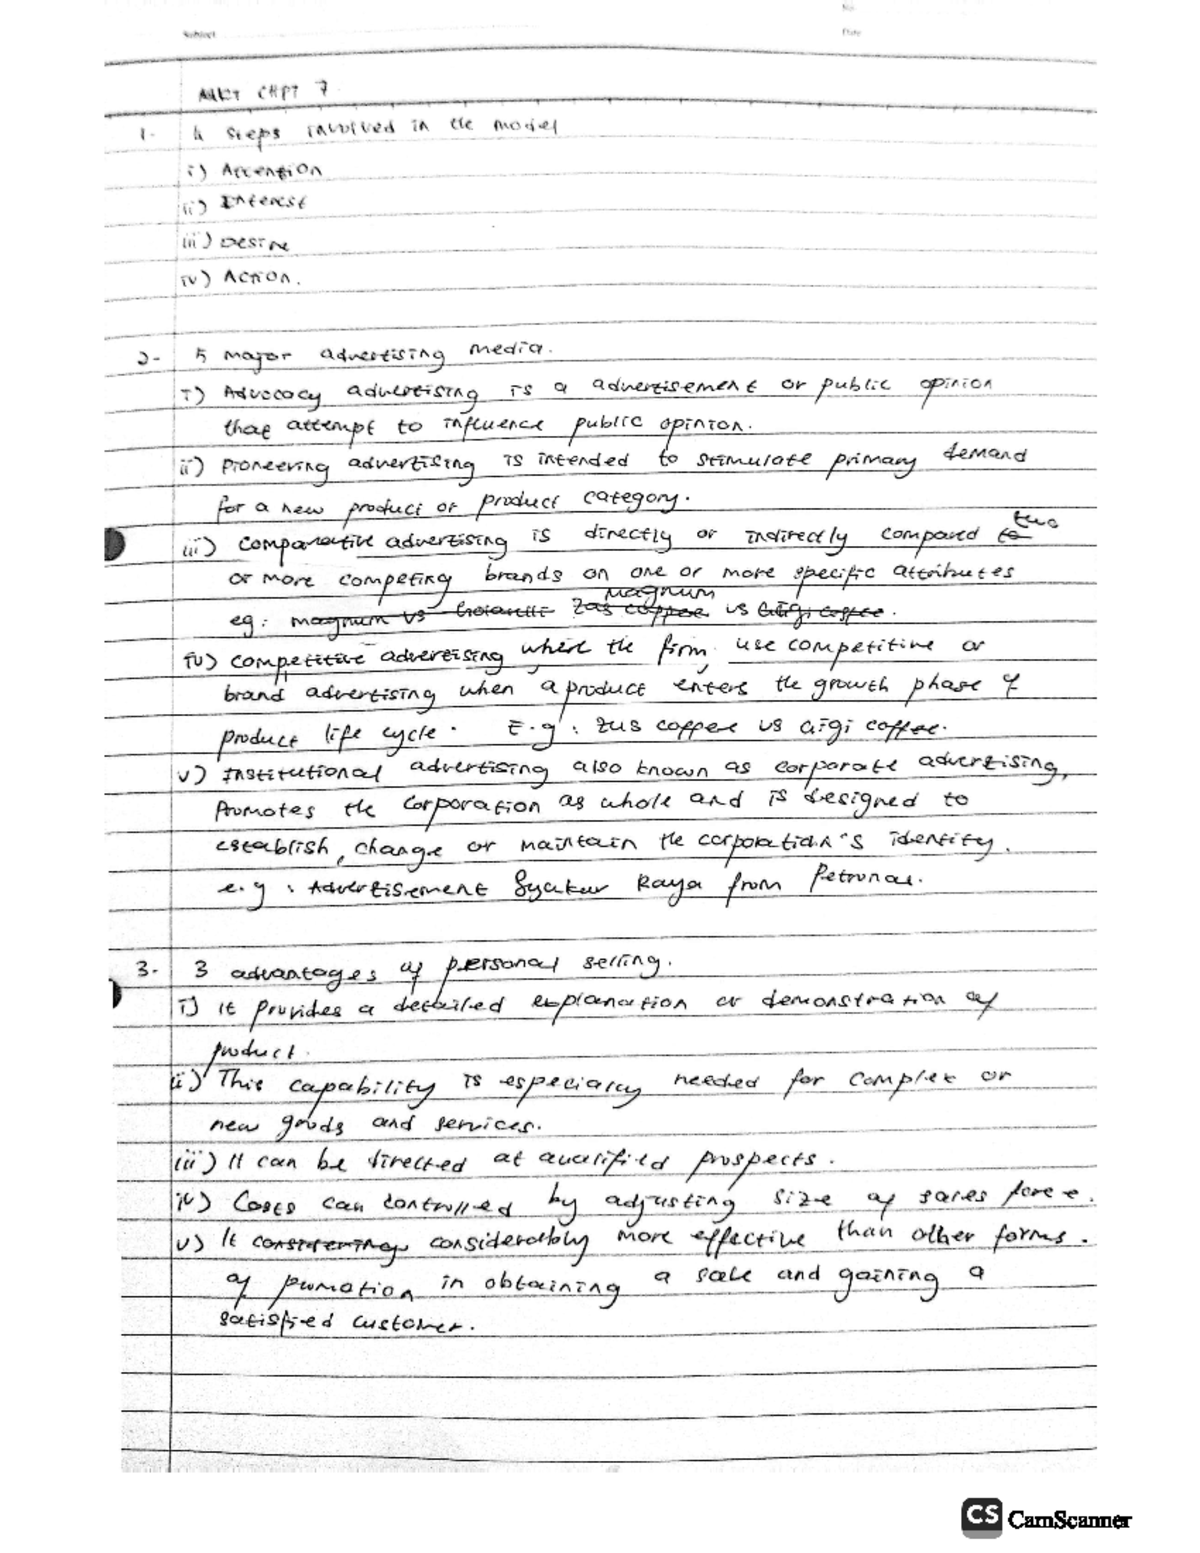 Subject
No.
Date
MKT CHPT 7
1. 4 steps involved in the model
i) Attention
ii) Interest
iii) Desire
iv) Action.
2. 5 major advertising media.
i) Advocacy advertising is a advertisement or public opinion
that attempt to influence public opinion.
ii) Pioneering advertising is intended to stimulate primary demand
for a new product or product category.
iii) comparative advertising is directly or indirectly compared to two
or more competing brands on one or more specific attributes
eg: magnum vs zus coffee magnum vs Gigi coffee.
iv) competitive advertising where the firm use competitive or
brand advertising when a product enters the growth phase of
product life cycle. E.g: zus coffee vs Gigi coffee.
v) Institutional advertising also known as corporate advertising,
Promotes the corporation as whole and is designed to
establish, change or maintain the corporation's identity.
e.g: Advertisement Syukur Raya from Petronas.
3. 3 advantages of personal selling.
i) It provides a detailed explanation or demonstration of
product.
ii) This capability is especially needed for complex or
new goods and services.
iii) It can be directed at qualified prospects.
iv) Costs can controlled by adjusting size of sales force.
v) It considering considerably more effective than other forms.
of promotion in obtaining a sale and gaining a
satisfied customer.
CS CamScanner